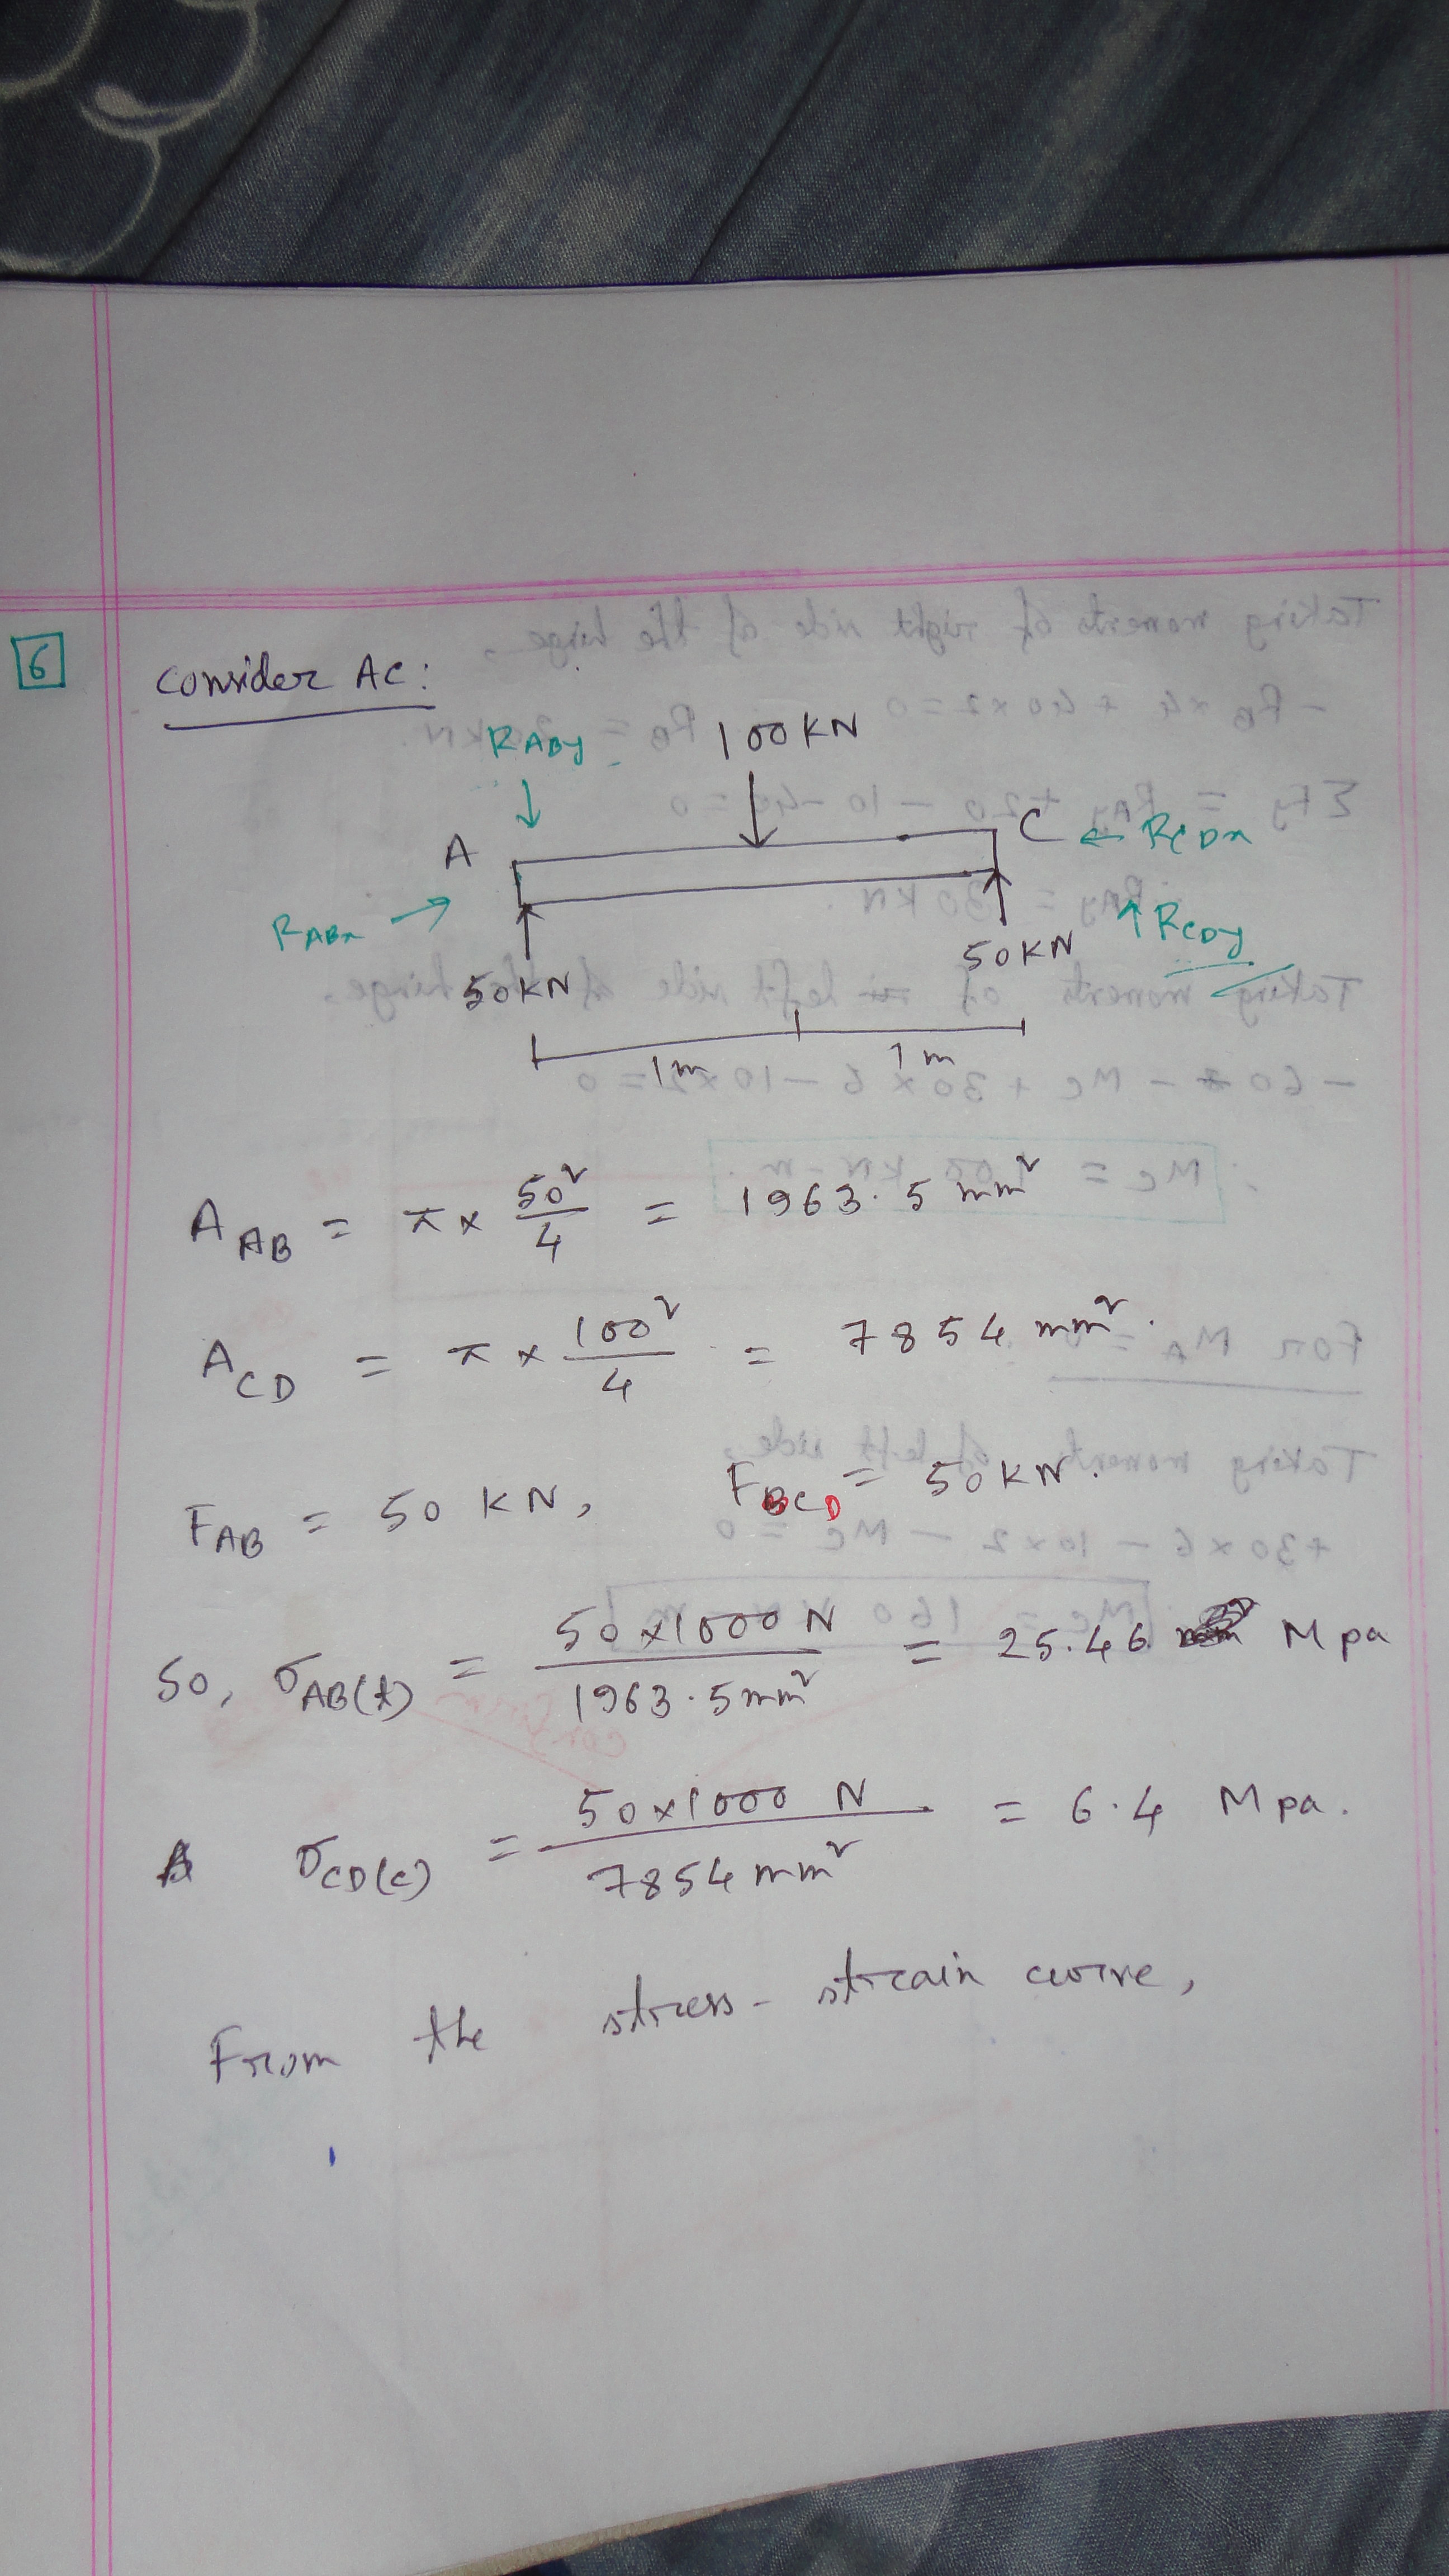 6
Consider AC:
RABy 100KN
A C ← RCDx
RABx →
50KN 50KN ↑ RCDy
1m 1m
A AB = π × 50²/4 = 1963.5 mm²
A CD = π × 100²/4 = 7854 mm².
FAB = 50 KN, FBCD = 50KN.
So, σAB(t) = 50×1000 N / 1963.5mm² = 25.46 Mpa
σCD(c) = 50×1000 N / 7854 mm² = 6.4 Mpa.
From the stress-strain curve,